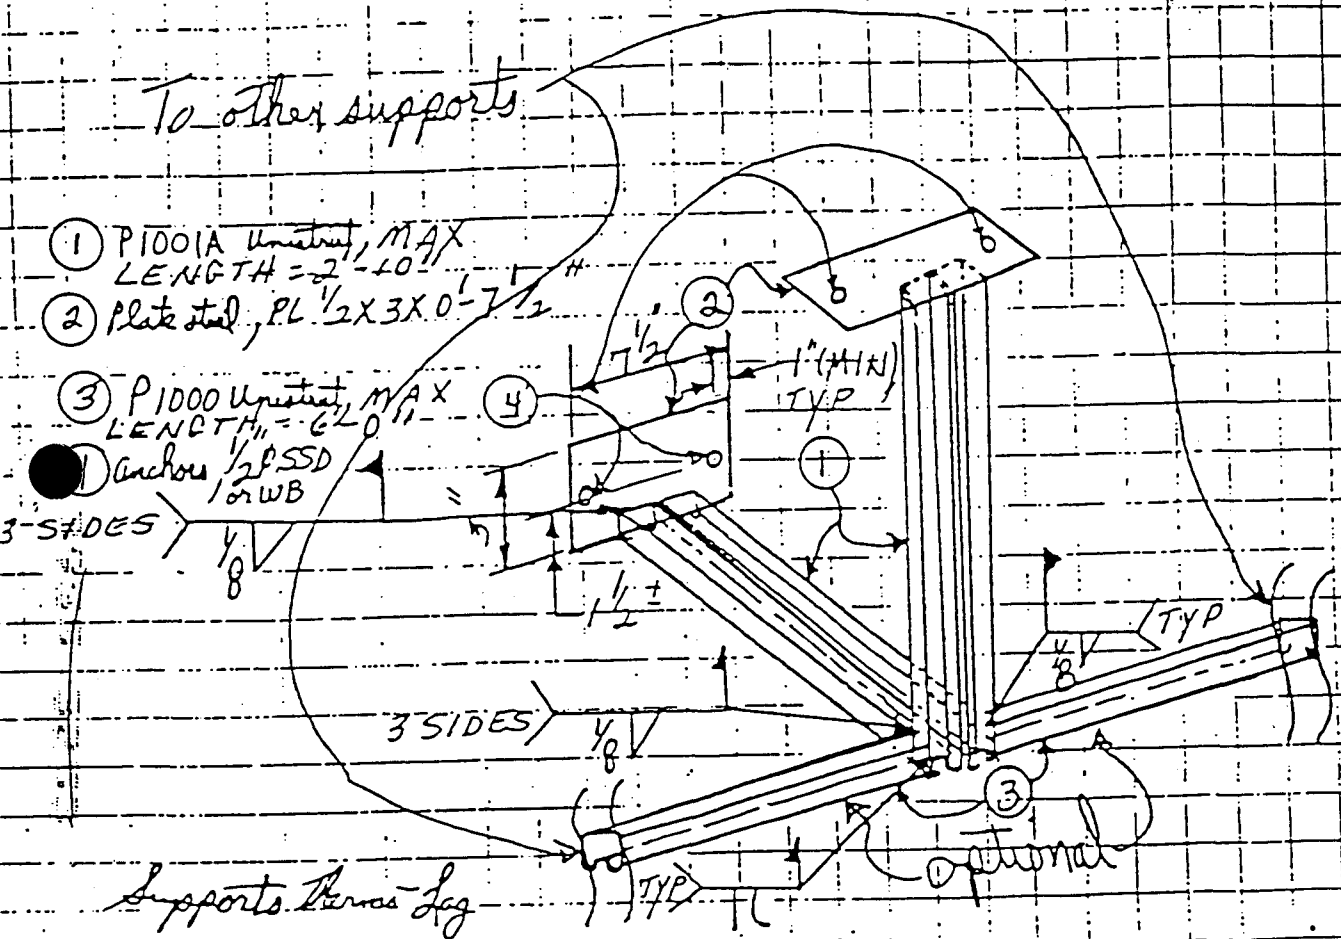 To other supports
1 P1001A Unistrut, MAX
LENGTH = 2'-10"
2 Plate steel, PL 1/2 X 3 X 0'-7 1/2"
3 P1000 Unistrut, MAX
LENGTH = 6'-0"
anchors, 1/2 SSD
or WB
3-SIDES
1/8
4
2
7 1/2"
1" (MIN)
TYP
1
5"
1 1/2 ±
TYP
1/8
3 SIDES
1/8
3
optional
TYP
Supports Thermo-Lag